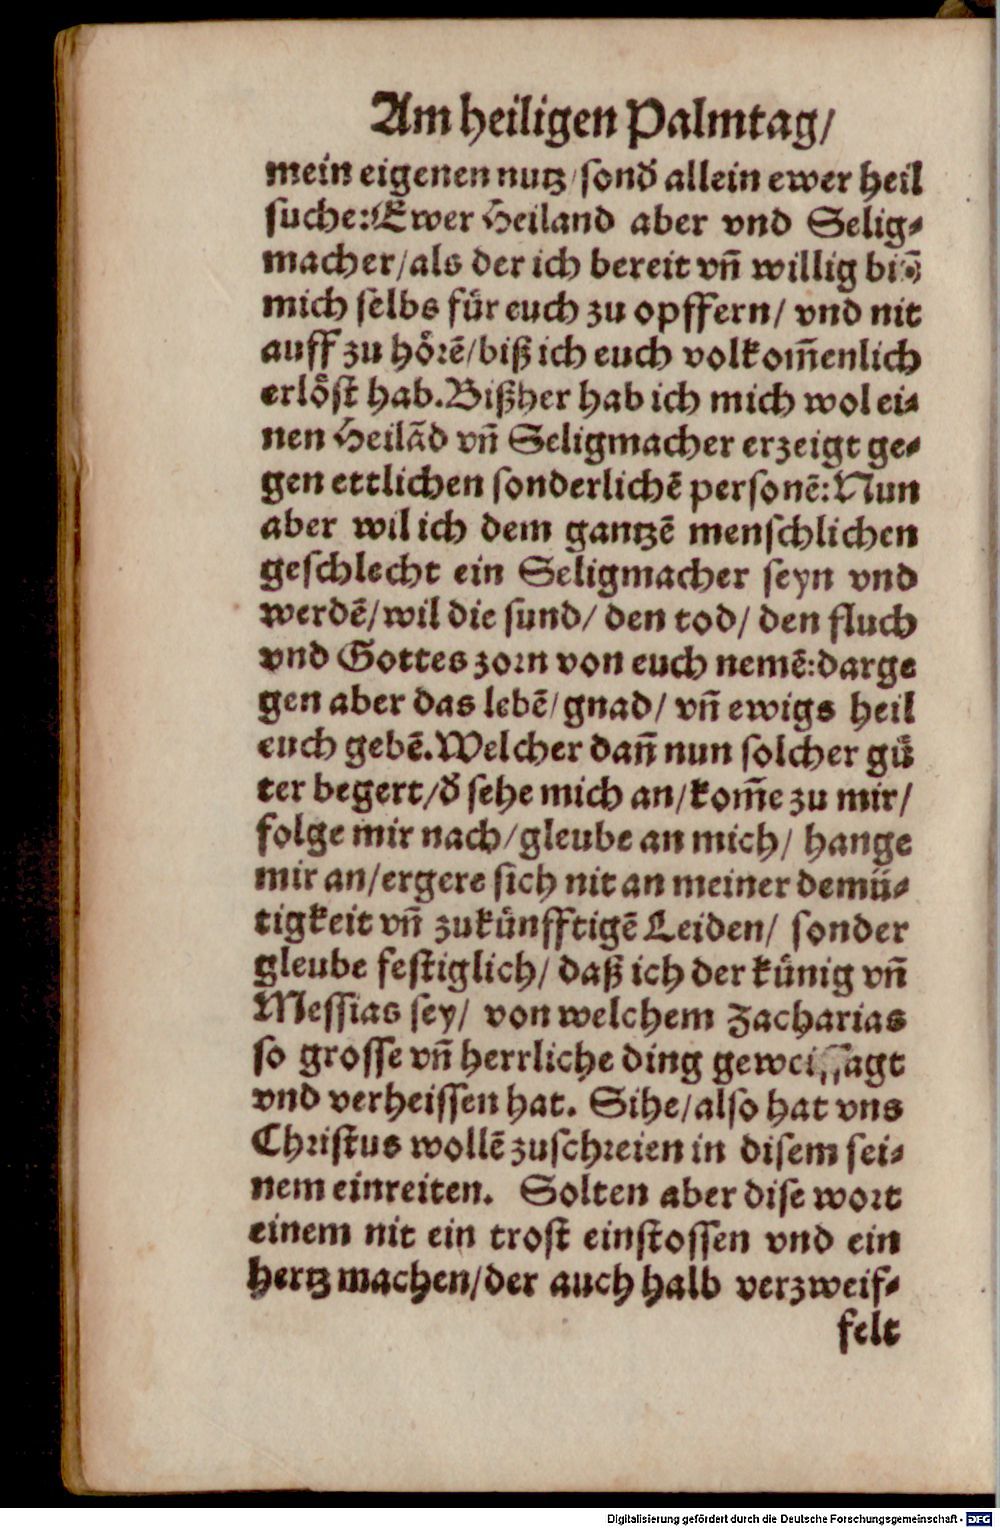 Am heiligen Palmtag/
mein eigenen nutz/sonď allein ewer heil
suche: Ewer Heiland aber vnd Selig⸗
macher/als der ich bereit vñ willig bin̄
mich selbs fuͤr euch zu opffern/ vnd nit
auff zu hoͤrē/biß ich euch volkom̄enlich
erloͤst hab. Bißher hab ich mich wol ei⸗
nen Heilād vñ Seligmacher erzeigt ge⸗
gen ettlichen sonderlichē personē: Nun
aber wil ich dem gantzē menschlichen
geschlecht ein Seligmacher seyn vnd
werdē/wil die sund/ den tod/ den fluch
vnd Gottes zorn von euch nemē: darge
gen aber das lebē/gnad/ vñ ewigs heil
euch gebē. Welcher dañ nun solcher guͤ
ter begert/ď sehe mich an/kom̄e zu mir/
folge mir nach/gleube an mich/ hange
mir an/ergere sich nit an meiner demuͤ⸗
tigkeit vñ zukuͤnfftigē Leiden/ sonder
gleube festiglich/ daß ich der kuͤnig vñ
Messias sey/ von welchem Zacharias
so grosse vñ herrliche ding geweissagt
vnd verheissen hat. Sihe/also hat vns
Christus wollē zuschreien in disem sei⸗
nem einreiten. Solten aber dise wort
einem nit ein trost einstossen vnd ein
hertz machen/der auch halb verzweif⸗
felt
Digitalisierung gefördert durch die Deutsche Forschungsgemeinschaft - DFG